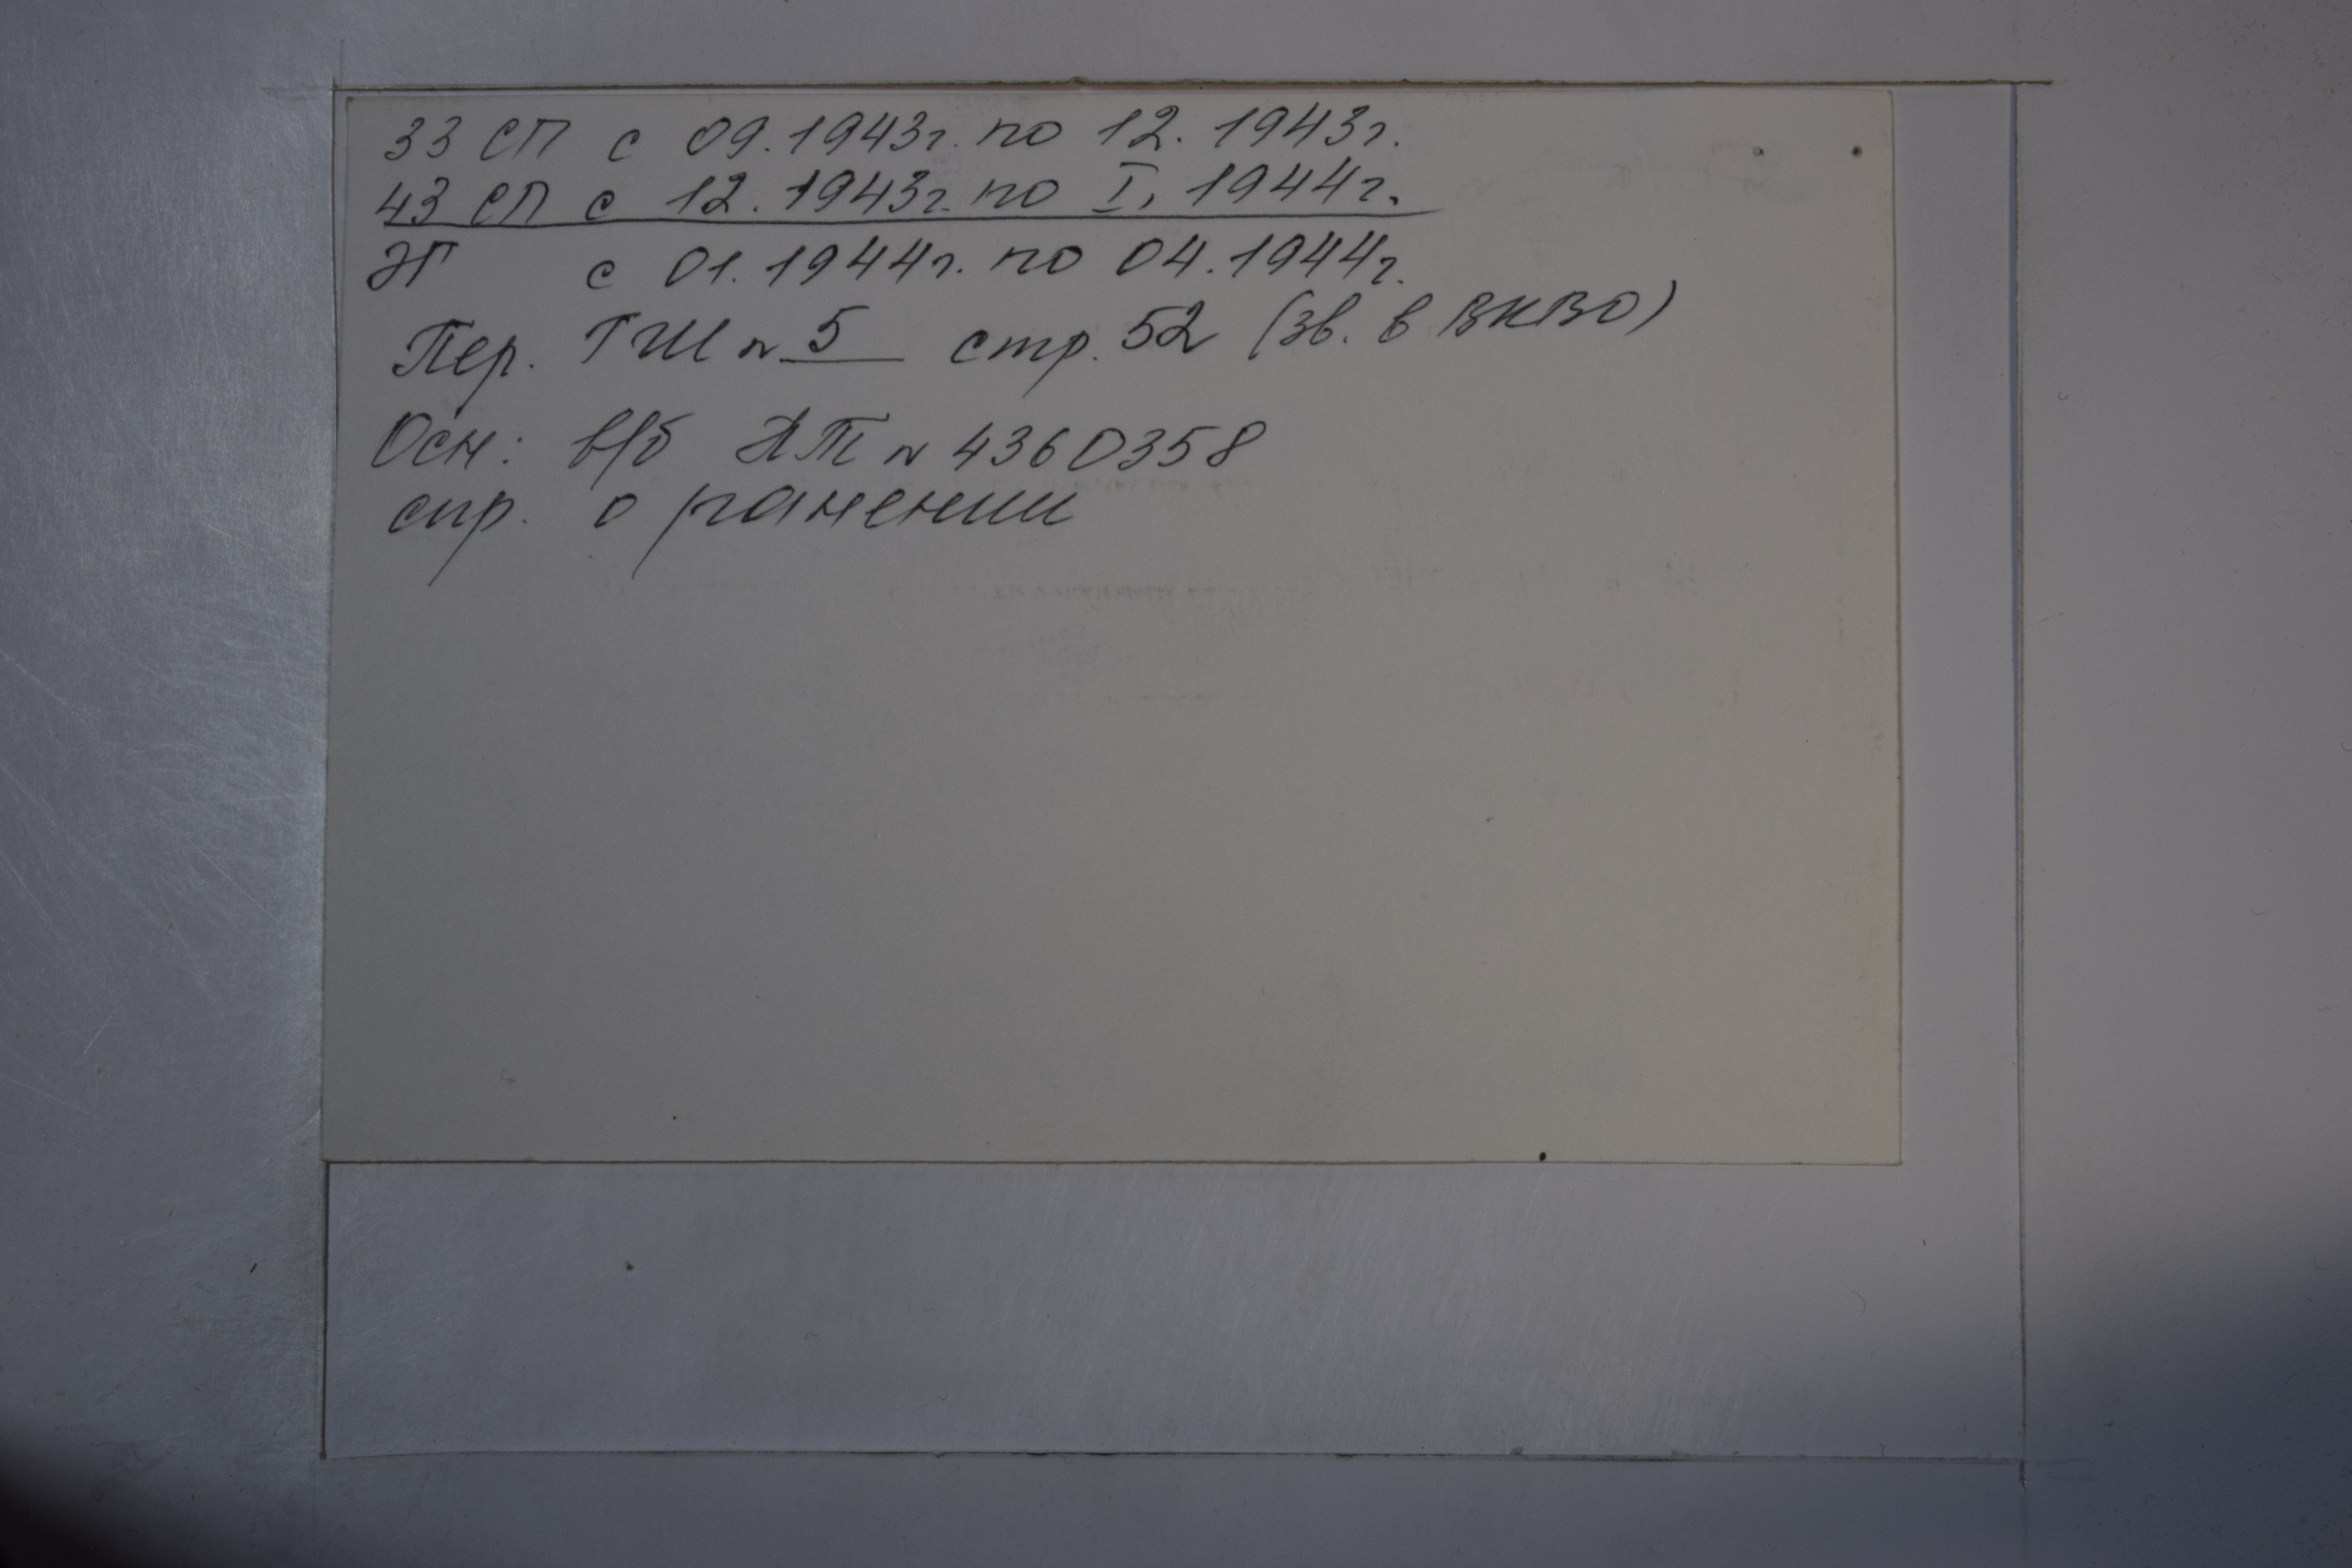 33 СП с 09.1943г. по 12.1943г.
43 СП с 12.1943г. по I, 1944г.
ЭГ с 01.1944г. по 04.1944г.
Пер. ГШ № 5 стр. 52 (зв. в ВКВО)
Осн: в/б АТ № 4360358
спр. о ранении